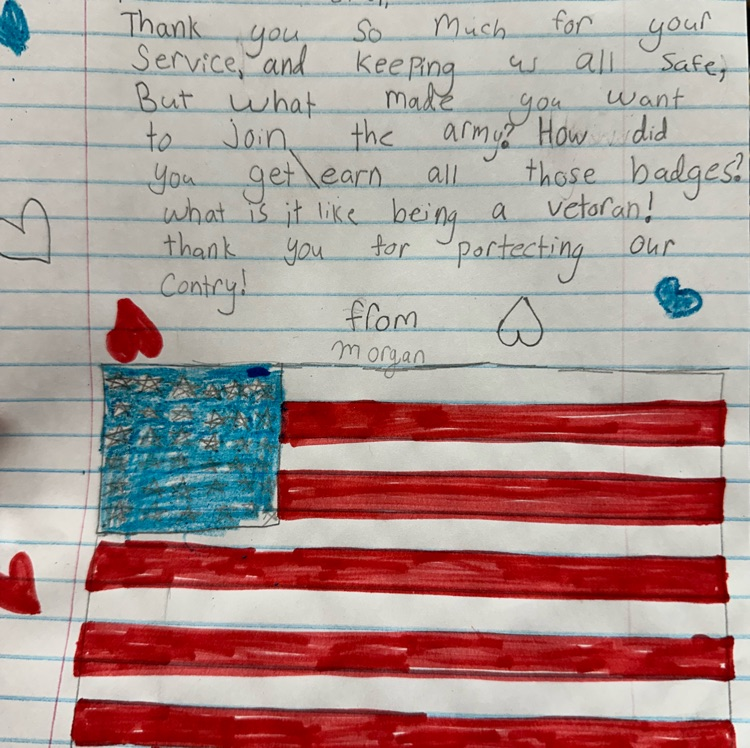 Thank you so much for your
Service, and keeping us all safe,
But what made you want
to join the army? How did
you get\earn all those badges?
what is it like being a vetoran!
thank you for portecting our
Contry!
from
morgan